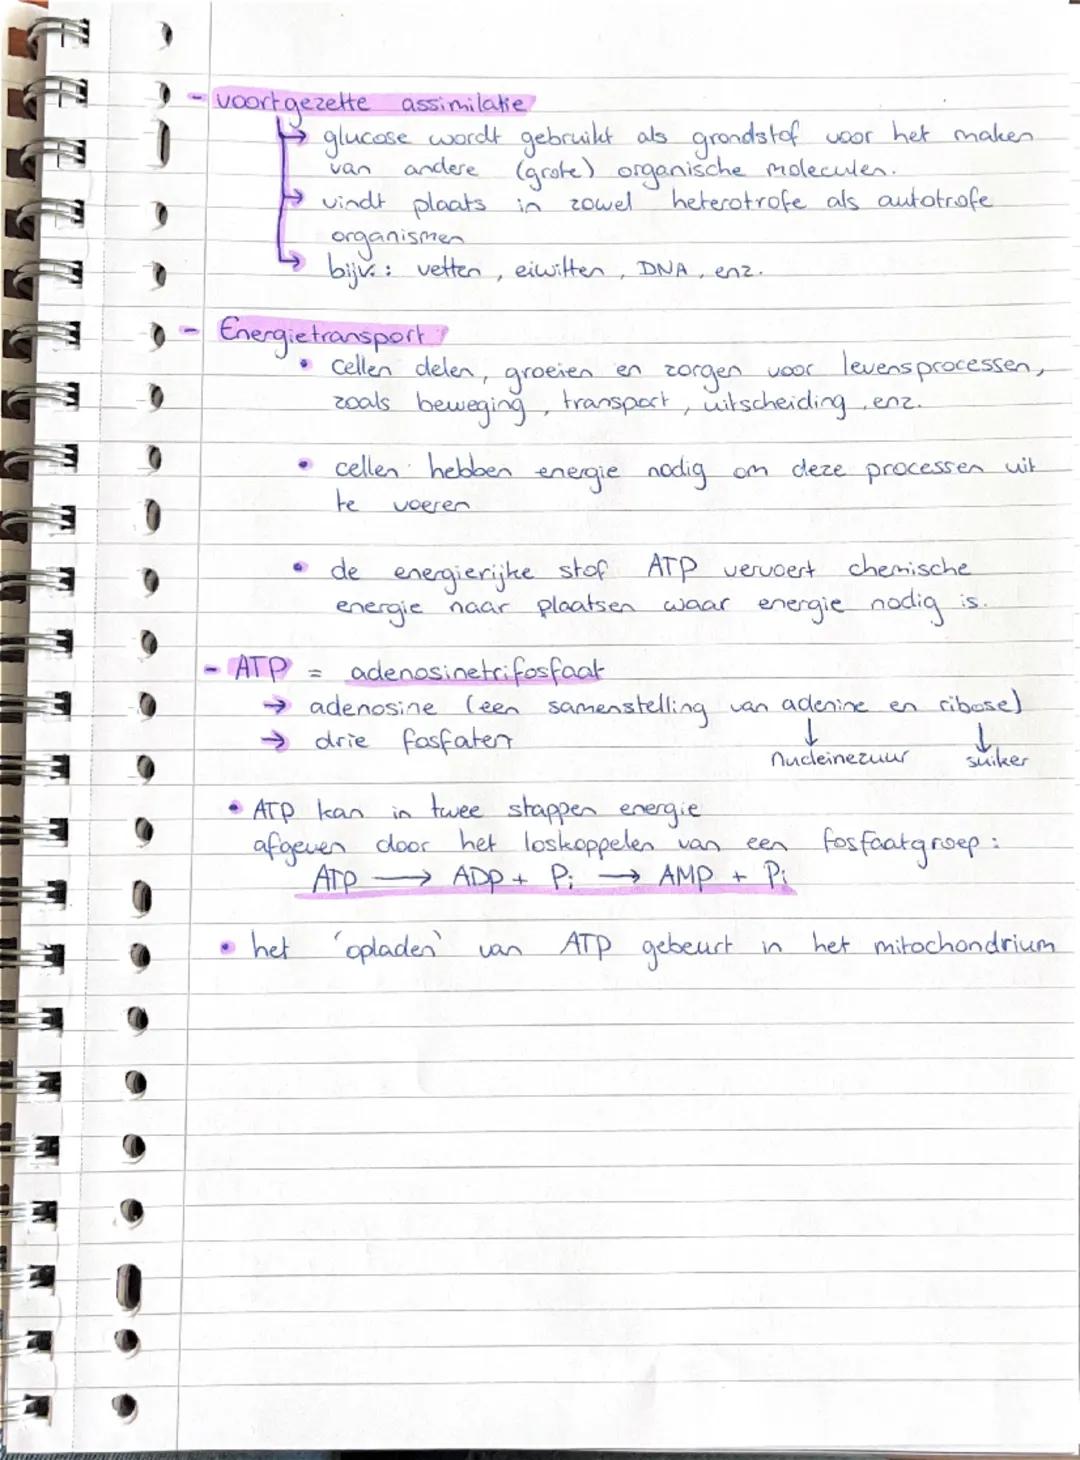 - voortgezette assimilatie
→ glucose wordt gebruikt als grondstof voor het maken
van andere (grote) organische moleculen.
→ vindt plaats in zowel heterotrofe als autotrofe
organismen
→ bijv.: vetten, eiwitten, DNA, enz.
- Energietransport
• cellen delen, groeien en zorgen voor levensprocessen,
zoals beweging, transport, uitscheiding, enz.
• cellen hebben energie nodig om deze processen uit
te voeren
• de energierijke stof ATP vervoert chemische
energie naar plaatsen waar energie nodig is.
- ATP = adenosinetrifosfaat
→ adenosine (een samenstelling van adenine en ribose)
→ drie fosfaten
↓ nucleinezuur ↓ suiker
• ATP kan in twee stappen energie
afgeven door het loskoppelen van een fosfaatgroep:
ATP → ADP + Pi → AMP + Pi
• het 'opladen' van ATP gebeurt in het mitochondrium